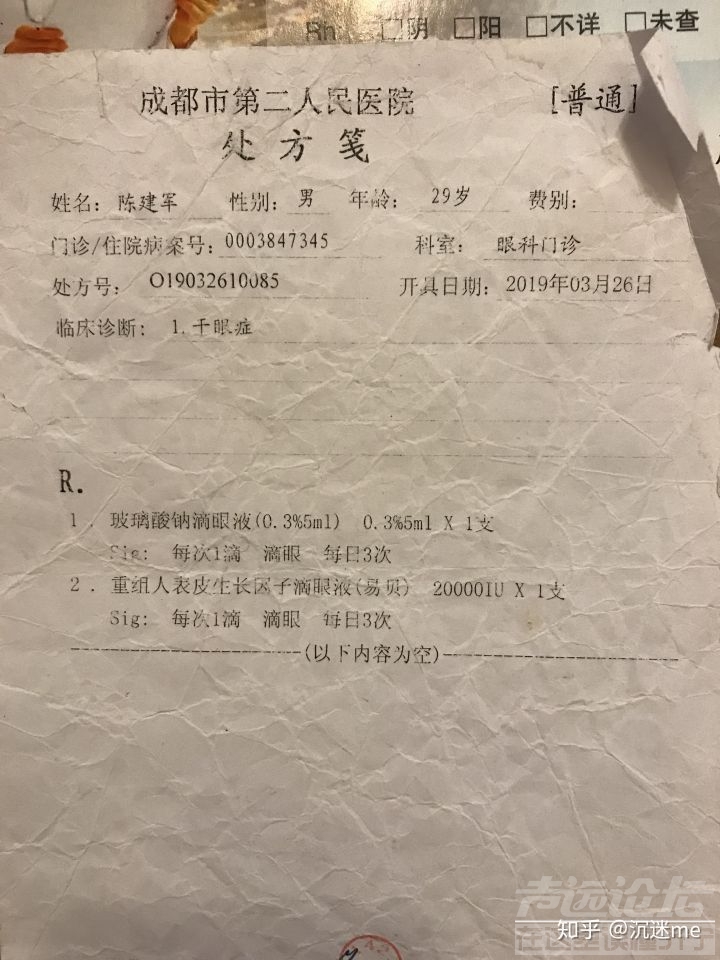 Rh □阴 □阳 □不详 □未查
成都市第二人民医院 [普通]
处方笺
姓名: 陈建军 性别: 男 年龄: 29岁 费别:
门诊/住院病案号: 0003847345 科室: 眼科门诊
处方号: O19032610085 开具日期: 2019年03月26日
临床诊断: 1.干眼症
R.
1 . 玻璃酸钠滴眼液(0.3%5ml) 0.3%5ml X 1支
Sig: 每次1滴 滴眼 每日3次
2 . 重组人表皮生长因子滴眼液(易贝) 20000IU X 1支
Sig: 每次1滴 滴眼 每日3次
(以下内容为空)
知乎 @沉迷me